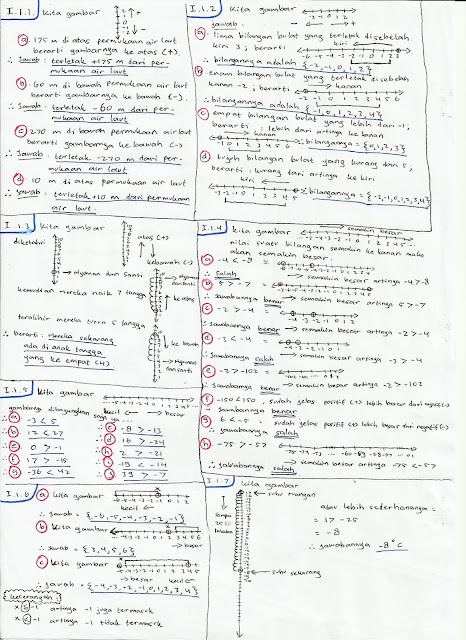 I.1.1 kita gambar
(a) 175 m di atas permukaan air laut
berarti gambarnya ke atas (+)
∴ Jawab : terletak +175 m dari per-
mukaan air laut
(b) 60 m di bawah permukaan air laut
berarti gambarnya ke bawah (-)
∴ Jawab : terletak -60 m dari per-
mukaan air laut
(c) 270 m di bawah permukaan air laut
berarti gambarnya ke bawah (-)
∴ Jawab : terletak -270 m dari per-
mukaan air laut
(d) 10 m di atas permukaan air laut
∴ Jawab : terletak +10 m dari permukaan
air laut.
I.1.2 kita gambar
-2 -1 0 1 2
jawab :
(a) lima bilangan bulat yang terletak disebelah
kiri 3 ; berarti
kiri
∴ bilangannya adalah {-2,-1,0,1,2}
(b) enam bilangan bulat yang terletak disebelah
kanan -2 ; berarti
kanan
-2 -1 0 1 2 3 4 5 6
∴ bilangannya adalah {-1,0,1,2,3,4}
(c) empat bilangan bulat yang lebih dari -1 ;
berarti : lebih dari artinya ke kanan
kanan
∴ bilangannya = {0,1,2,3}
(d) tujuh bilangan bulat yang kurang dari 5 ;
berarti : kurang dari artinya ke kiri
kiri
∴ bilangannya = {-2,-1,0,1,2,3,4}
I.1.3 kita gambar
diketahui
atas (+)
kebawah (-)
Algaman dan Santi
kemudian mereka naik 7 tangga
ke atas
terakhir mereka turun 5 tangga
∴ berarti : mereka sekarang
ada di anak tangga
yang ke empat (4)
ke bawah
Algaman dan Santi
I.1.4 kita gambar
semakin besar
nilai suatu bilangan semakin ke kanan maka
akan semakin besar.
(a) -4 < -8 =
∴ Salah → semakin besar artinya -4 > -8
(b) 5 > -7 =
∴ jawabannya benar → semakin besar artinya 5 > -7
(c) -2 > -4 =
∴ jawabannya benar → semakin besar artinya -2 > -4
(d) -3 < -4 =
∴ jawabannya salah → semakin besar artinya -3 > -4
(e) -2 > -102 =
∴ jawabannya benar → semakin besar artinya -2 > -102
(f) -150 < 150 , sudah jelas positif (+) lebih besar dari negatif (-)
∴ jawabannya benar
(g) 6 < -5 , sudah jelas positif (+) lebih besar dari negatif (-)
∴ jawabannya salah
(h) -75 > -57
∴ jawabannya salah → semakin besar artinya -75 < -57
I.1.5 kita gambar
kecil ← → besar
gambarnya dibayangkan saja ya...
∴ (a) -3 < 5
∴ (b) 12 < 27
∴ (e) 0 > -1
∴ (f) 17 > -15
∴ (g) -36 < 42
∴ -8 > -13
∴ (d) 16 > -24
∴ (h) 2 > -21
∴ (i) -19 < -14
∴ 39 > -7
I.1.6 (a) kita gambar
kecil
∴ Jawab = {-6,-5,-4,-3,-2,-1}
(b) kita gambar
→ besar
∴ Jawab = {3,4,5,6}
(c) kita gambar
→ besar kecil ←
∴ Jawab = {-4,-3,-2,-1,0,1,2,3,4}
keterangan
x ≤ -1 artinya -1 juga termasuk
x < -1 artinya -1 tidak termasuk
I.1.7 kita gambar
→ suhu ruangan
atau lebih sederhananya =
= 17 - 25
= -8
∴ jawabannya -8°C
→ suhu sekarang